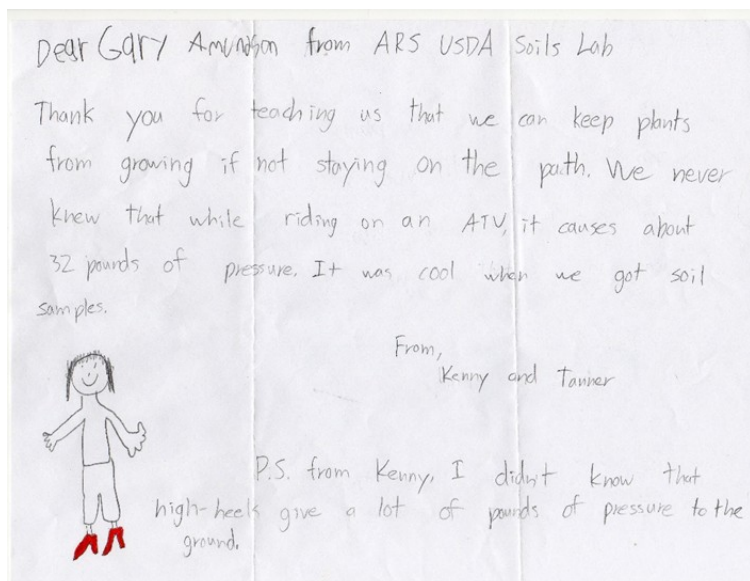 Dear Gary Amundson from ARS USDA Soils Lab
Thank you for teaching us that we can keep plants
from growing if not staying on the path. We never
knew that while riding on an ATV, it causes about
32 pounds of pressure. It was cool when we got soil
samples.
From,
Kenny and Tanner
P.S. from Kenny, I didn't know that
high-heels give a lot of pounds of pressure to the
ground.